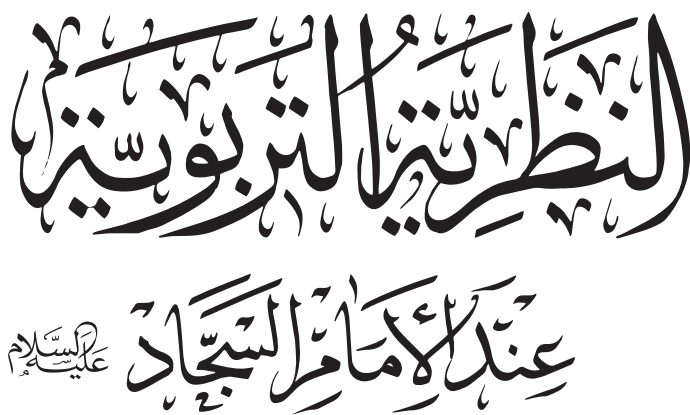 النَّظَرِيَّةُ التَّرْبَوِيَّة
عِنْدَ الْإِمَامِ السَّجَّادِ عَلَيْهِ السَّلَام